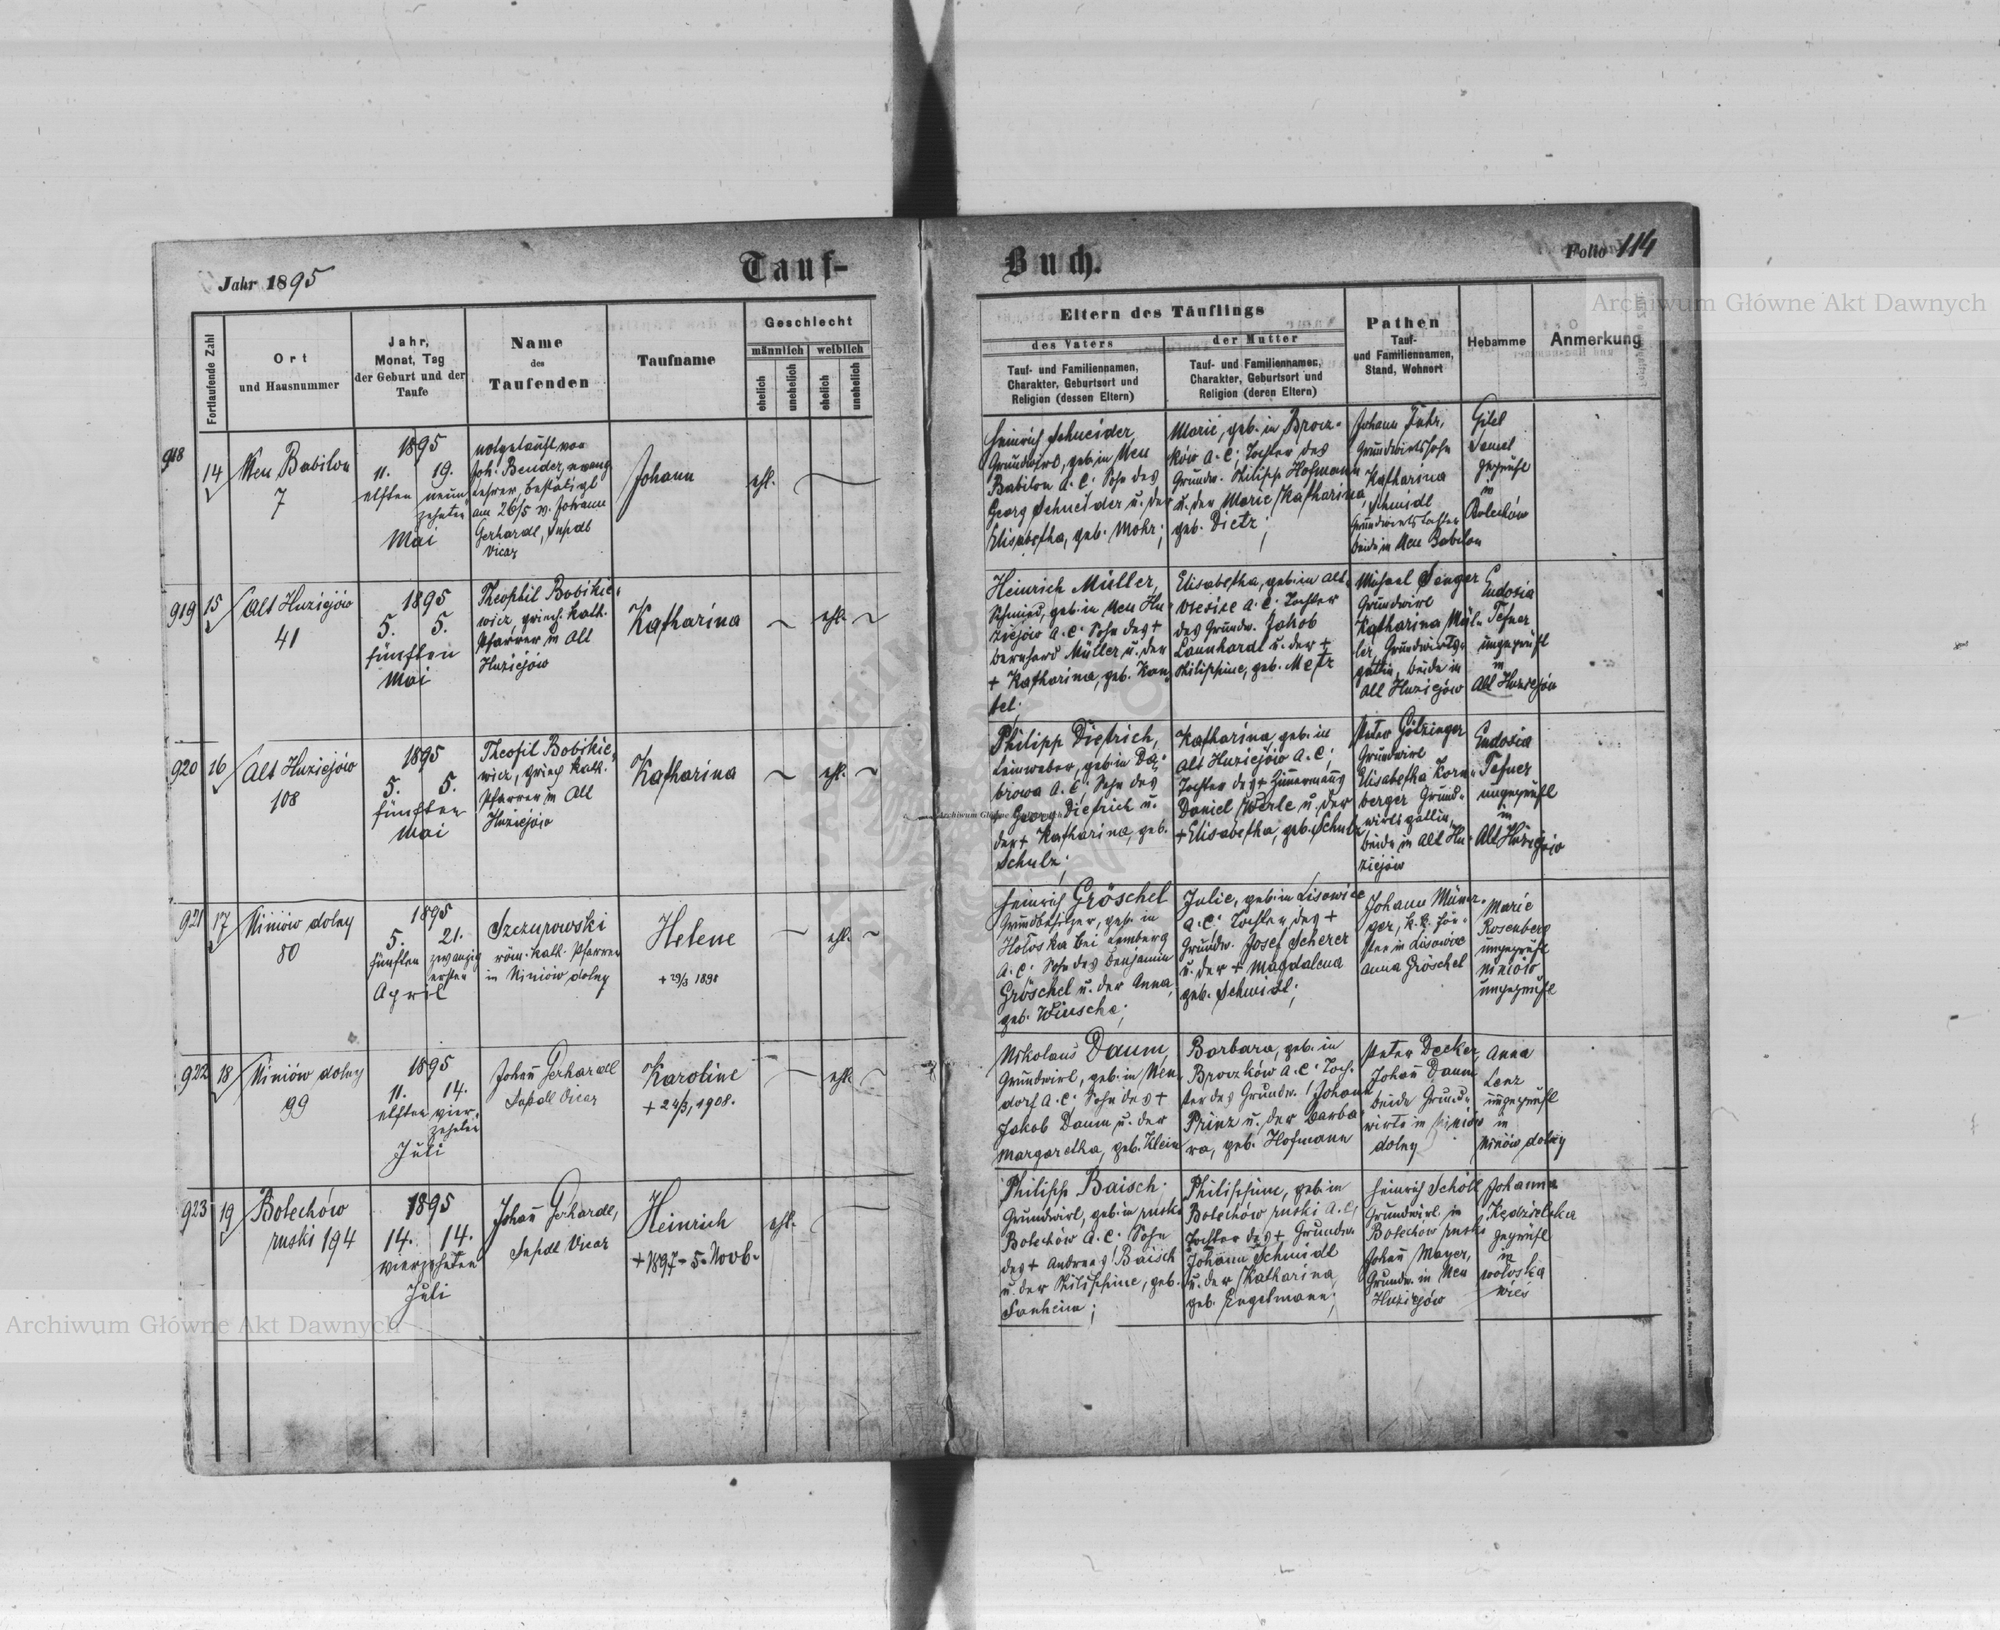 Jahr 1895
Tauf-
Buch.
Folio 114
Archiwum Główne Akt Dawnych
Fortlaufende Zahl
Ort
und Hausnummer
Jahr,
Monat, Tag
der Geburt und der
Taufe
Name
des
Taufenden
Taufname
Geschlecht
männlich weiblich
ehelich
unehelich
ehelich
unehelich
Eltern des Täuflings
des Vaters
der Mutter
Tauf- und Familiennamen,
Charakter, Geburtsort und
Religion (dessen Eltern)
Tauf- und Familiennamen,
Charakter, Geburtsort und
Religion (deren Eltern)
Pathen
Tauf-
und Familiennamen,
Stand, Wohnort
Hebamme
Anmerkung
918
14
Neu Babilon
7
1895
11. 19.
elften neun
zehnten
Mai
notgetauft von
Joh. Bender, evang
Lehrer, bestätigt
am 26/5 v. Johann
Gerhardt, Supdt
Vicar
Johann
ehl.
Heinrich Schneider,
Grundwirt, geb. in Neu
Babilon A. C. Sohn des
Georg Schneider u. der
Elisabetha, geb. Mohr;
Marie, geb. in Brocz-
ków A. C; Tochter des
Grundw. Philipp Hofmann
u. der Marie Katharina
geb. Dietz;
Johann Fuhr,
Grundwirtssohn
Katharina
Schmidt
Grundwirtstochter
beide in Neu Babilon
Gitel
geprüft
in
Bolechów
919
15
Alt Huziejów
41
1895
5. 5.
fünften
Mai
Theophil Bobikie-
wicz, griech. kath.
Pfarrer in Alt
Huziejów
Katharina
ehl.
Heinrich Müller,
Schmied, geb. in Neu Hu-
ziejów A. C. Sohn des +
Bernhard Müller u. der
+ Katharina, geb. Kan-
tel;
Elisabetha, geb. in Alt-
A. C. Tochter
des Grundw. Jakob
Launhardt u. der +
Philippine, geb. Metz
Michael Senger
Grundwirt
Katharina Mül-
ler Grundwirts-
gattin, beide in
Alt Huziejów
Eudosia
Tefner
ungeprüft
in
Alt Huziejów
920
16
Alt Huziejów
108
1895
5. 5.
fünften
Mai
Theofil Bobikie-
wicz, griech. kath.
Pfarrer in Alt
Huziejów
Katharina
ehl.
Philipp Dietrich,
Leinweber, geb. in Dą-
browa A. C; Sohn des
Georg Dietrich u.
der + Katharina, geb.
Schulz;
Katharina, geb. in
Alt Huziejów A. C;
Tochter des + Zimmermanns
Daniel Werle u. der
+ Elisabetha, geb. Schulz
Peter Götzinger
Grundwirt
Elisabetha Korn-
berger Grund-
wirtsgattin,
beide in Alt Hu-
ziejów
Eudosia
Tefner
ungeprüft
in
Alt Huziejów
Archiwum Główne Akt Dawnych
921
17
Niniów dolny
80
1895
5. 21.
fünften zwanzig
ersten
April
Szczurowski
röm. kath. Pfarrer
in Niniów dolny
Helene
+ 29/3 1898
ehl.
Heinrich Gröschel
Grundbesitzer, geb. in
Hołosko bei Lemberg
A. C. Sohn des Benjamin
Gröschel u. der Anna,
geb. Wünsche;
Julie, geb. in Lisowice
A. C. Tochter des +
Grundw. Josef Scherer
u. der + Magdalena
geb. Schmidt;
Johann Münzer-
ger, k. k. För-
ster in Lisowice
Anna Gröschel
Marie
Rosenberg
ungeprüft
Niniów
ungeprüft
922
18
Niniów dolny
99
1895
11. 14.
elften vier-
zehnten
Juli
Johañ Gerhardt
Supdt Vicar
Karoline
+ 24/3, 1908.
ehl.
Nikolaus Daum,
Grundwirt, geb. in Neu-
dorf A. C. Sohn des +
Jakob Daum u. der
Margaretha, geb. Klein
Barbara, geb. in
Broczków A. C. Toch-
ter des Grundw. Johann
Prinz u. der Barba-
ra, geb. Hofmann
Peter Decker,
Johañ Daum
beide Grund-
wirte in Niniów
dolny
Anna
Lenz
ungeprüft
in
Niniów dolny
923
19
Bolechów
ruski 194
1895
14. 14.
vierzehnten
Juli
Johañ Gerhardt,
Supdt Vicar
Heinrich
+ 1897 - 5. Novb.
ehl.
Philipp Baisch.
Grundwirt, geb. in ruski
Bolechów A. C. Sohn
des + Andreas Baisch
u. der Philippine, geb.
Philippine, geb. in
Bolechów ruski A. C,
Tochter des + Grundw.
Johann Schmidt
u. der Katharina,
geb. Engelmann;
Heinrich Scholl
Grundwirt in
Bolechów ruski
Johañ Mayer,
Grundw. in Neu
Huziejów
Johanna
Kędzielska
geprüft
in
wołoska
wieś
Archiwum Główne Akt Dawnych